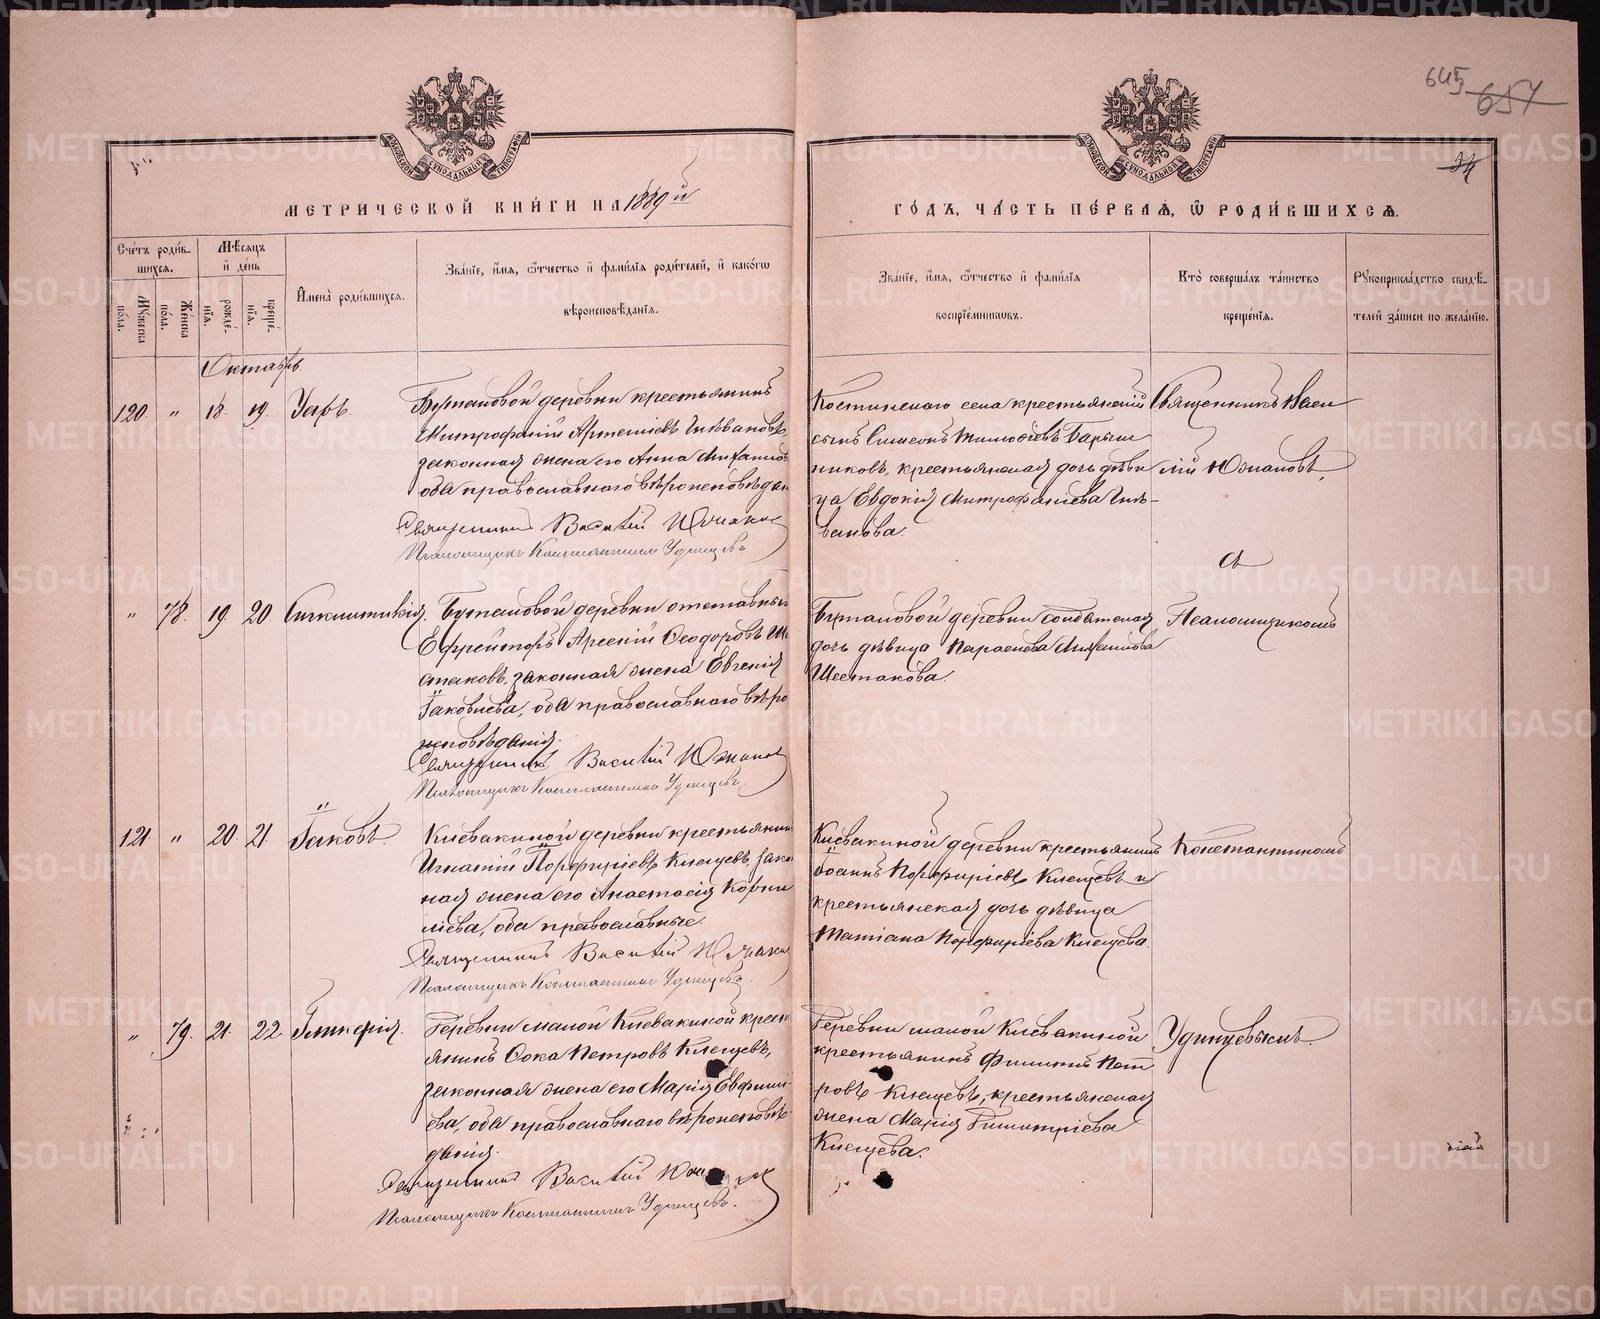 645 657
34
МЕТРИЧЕСКОЙ КНИГИ НА 1889й
ГОДЪ, ЧАСТЬ ПЕРВАЯ, Ѿ РОДИВШИХСЯ.
Счетъ родив-
шихся.
Мужеска пола.
Женска пола.
Мѣсяцъ и день
рожде-
нія.
креще-
нія.
Имена родившихся.
Званіе, имя, ѿчество и фамилія родителей, и какогѡ
вѣроисповѣданія.
Званіе, имя, ѿчество и фамилія
воспріемниковъ.
Кто совершалъ таинство
крещенія.
Рукоприкладство свидѣ-
телей записи по желанію.
Октябрь
120. " 18. 19. Уаръ.
деревни крестьянинъ
Митрофаній Артемьевъ
законная жена его Анна
оба православнаго вѣроисповѣдан
Священникъ Василій
Псаломщикъ Константинъ Удинцевъ
Костинскаго села крестьянскій
сынъ Симеонъ Тимофеевъ Барыш
никовъ, крестьянская дочь дѣви
ца Евдокія Митрофаніева
Священникъ Васи
лій
съ
" 78. 19. 20
деревни отставный
Ефрейторъ Арсеній Ѳеодоровъ Ше
стаковъ, законная жена Евгенія
Іаковлева, оба православнаго вѣро
исповѣданія.
Священникъ Василій
Псаломщикъ Константинъ Удинцевъ.
деревни солдатская
дочь дѣвица Параскева Михаилова
Шестакова.
Псаломщикомъ
121. " 20 21. Іаковъ.
Клевакиной деревни крестьянин
Игнатій Порфиріевъ Клещевъ, закон
ная жена его Анастасія Корни
ліева, оба православные.
Священникъ Василій
Псаломщикъ Константинъ Удинцевъ.
Клевакиной деревни крестьянинъ
Іоаннъ Порфиріевъ Клещевъ и
крестьянская дочь дѣвица
Татіана Порфиріева Клещева.
Константиномъ
" 79. 21. 22 Гликерія.
Деревни малой Клевакиной крест
янинъ Сока Петровъ Клещевъ,
законная жена его Марія Евфими
ева, оба православнаго вѣроисповѣ-
данія.
Священникъ Василій
Псаломщикъ Константинъ Удинцевъ.
Деревни малой Клевакиной
крестьянинъ Филиппъ Пет
ровъ Клещевъ, крестьянская
жена Марія Димитріева
Клещева.
Удинцевымъ.
METRIKI.GASO-URAL.RU